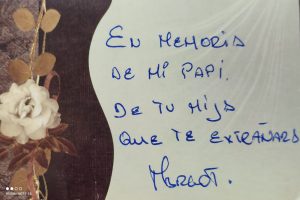 En memoria
de mi papi.
De tu hija
que te extrañará
Margot.